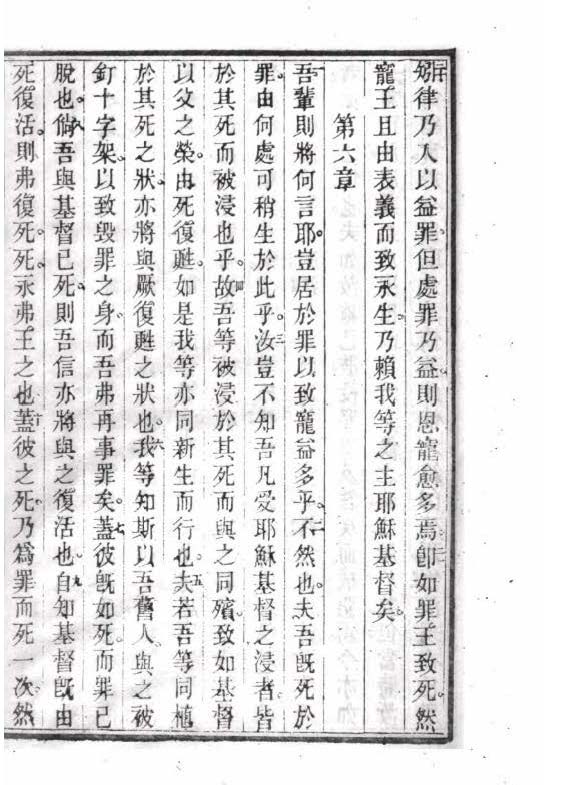 矧律乃入以益罪但處罪乃益則恩寵愈多焉卽如罪王致死然
寵王且由表義而致永生乃賴我等之主耶穌基督矣
第六章
吾輩則將何言耶豈居於罪以致寵益多乎不然也夫吾旣死於
罪由何處可稍生於此乎三汝豈不知吾凡受耶穌基督之浸者皆
於其死而被浸也乎四故吾等被浸於其死而與之同殯致如基督
以父之榮由死復甦如是我等亦同新生而行也五夫若吾等同植
於其死之狀亦將與厥復甦之狀也六我等知斯以吾舊人與之被
釘十字架以致毀罪之身而吾弗再事罪矣七蓋彼旣如死而罪已
脫也八倘吾與基督已死則吾信亦將與之復活也九自知基督旣由
死復活則弗復死死永弗王之也十蓋彼之死乃爲罪而死一次然